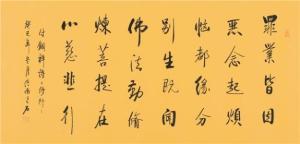 罪業皆因
惡念起煩
惱都緣分
別生既聞
佛法勤脩
煉菩提在
心慈悲行
癸巳年